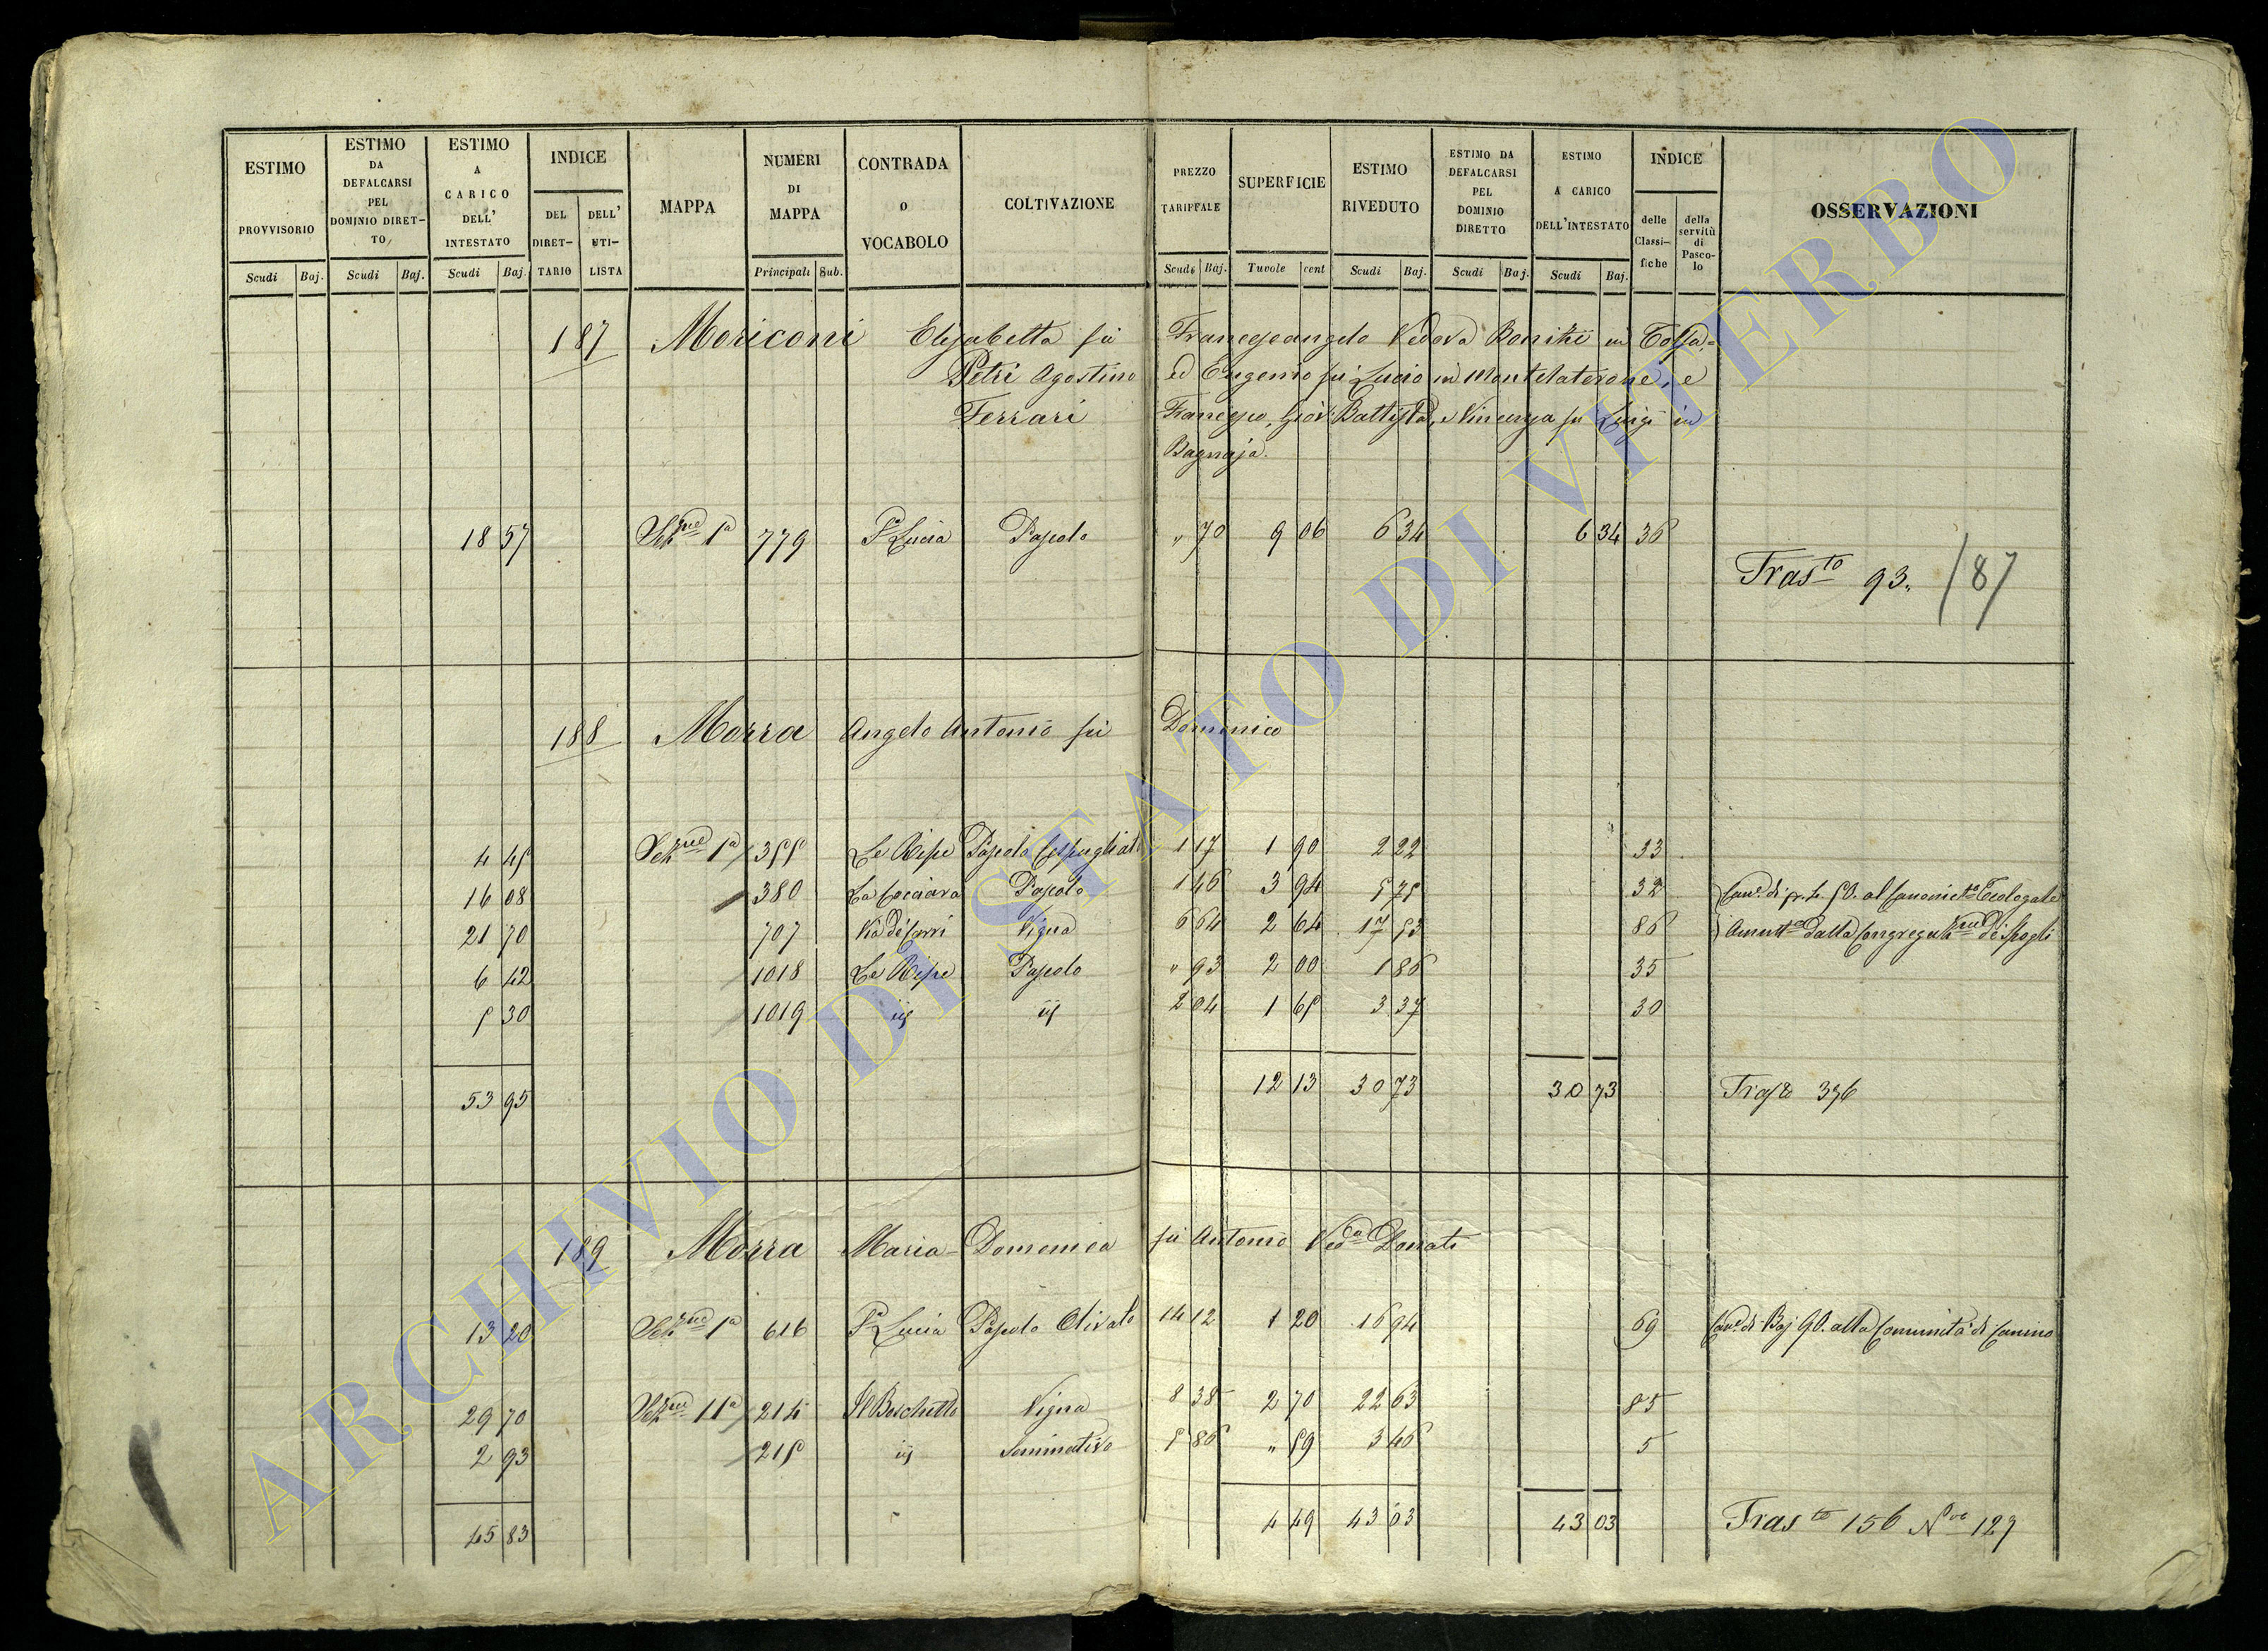 ESTIMO PROVVISORIO
ESTIMO DA DEFALCARSI PEL DOMINIO DIRET-TO
ESTIMO A CARICO DELL' INTESTATO
INDICE
DEL DIRET-TARIO
DELL' UTI-LISTA
MAPPA
NUMERI DI MAPPA
CONTRADA O VOCABOLO
COLTIVAZIONE
PREZZO TARIFFALE
SUPERFICIE
ESTIMO RIVEDUTO
ESTIMO DA DEFALCARSI PEL DOMINIO DIRETTO
ESTIMO A CARICO DELL'INTESTATO
INDICE
delle Classi-fiche
della servitù di Pasco-lo
OSSERVAZIONI
Scudi Baj. Scudi Baj. Scudi Baj. Principali Sub. Scudi Baj. Tavole cent Scudi Baj. Scudi Baj. Scudi Baj.
187 Moriconi Elisabetta fu Francescangelo Vedova Boniti in Tolfa,
Petri Agostino ed Eugenio fu Lucio in Montelaterone, e
Ferrari Francesco, Giov. Battista, e Vincenza fu Luigi in
Bagnaja.
18 57 Sezne 1a 779 Sa Lucia Pascolo " 70 9 06 6 34 6 34 36
Trasto 93. 187
188 Morra Angelo Antonio fu Domenico
4 45 Sezne 1a 355 Le Ripe Pascolo Cespugliato 1 17 1 90 2 22 33
16 08 380 La Cacciara Pascolo 1 46 3 94 5 75 32
21 70 707 Via de Carri Vigna 6 64 2 64 17 53 86
6 42 1018 Le Ripe Pascolo " 93 2 00 1 86 35
5 30 1019 iij iij 2 04 1 65 3 37 30
al Canonicto Teologale
dalla Congregazne
53 95 12 13 30 73 30 73 Trasto 376
189 Morra Maria Domenica fu Antonio Veda Donati
13 20 Sezne 1a 616 Sa Lucia Pascolo Olivato 14 12 1 20 16 94 69 Cane di Baj 90. alla Comunità di Canino
29 70 Sezne 11a 214 Il Boschetto Vigna 8 38 2 70 22 63 85
2 93 215 iij Seminativo 5 86 " 59 3 46 5
45 83 4 49 43 03 43 03 Trasto 156 Noe 127
ARCHIVIO DI STATO DI VITERBO